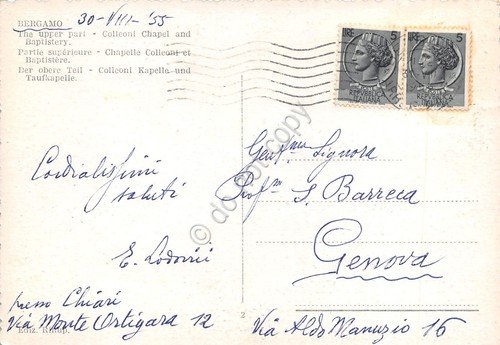 BERGAMO 30-VIII-'55
The upper part - Colleoni Chapel and
Baptistery.
Partie supérieure - Chapelle Colleoni et
Baptistère.
Der obere Teil - Colleoni Kapelle und
Taufkapelle.
Cordialissimi
saluti
E. Lodovici
presso Chiari
Via Monte Ortigara 12
Ediz.
2
LIRE 5
LIRE 5
Gent.ma Signora
Prof.ssa S. Barreca
Genova
Via Aldo Manuzio 16
do not copy